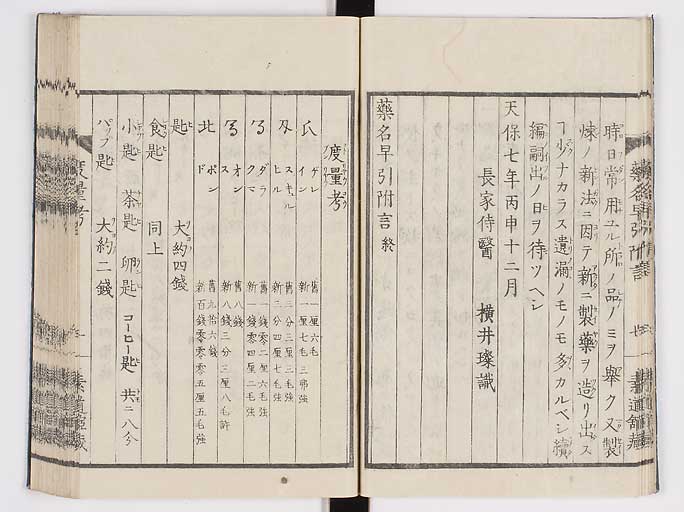 時日常用ユル所ノ品ノミヲ舉ク又製
煉ノ新法ニ因テ新ニ製藥ヲ造リ出ス
ヿ少ナカラス遺漏ノモノモ多カルベシ續
編嗣出ノ日ヲ待ツヘシ
天保七年丙申十二月
長家侍醫 横井璨識
藥名早引附言 終
度量考
ゲレイン 舊一厘六毛 新一厘七毛三弗強
スキルヒル 舊三分三厘三毛強 新二分四厘七毛強
ダラクマ 舊一錢零二厘六毛強 新一錢零四厘二毛強
オンス 舊八錢 新八錢三分三厘八毛許
ポンド 舊九拾六錢 新百錢零零五厘五毛強
匙 大約四錢
食匙 同上
小匙 茶匙 卵匙 コーヒー匙 共ニ八分
パップ匙 大約二錢
度量考